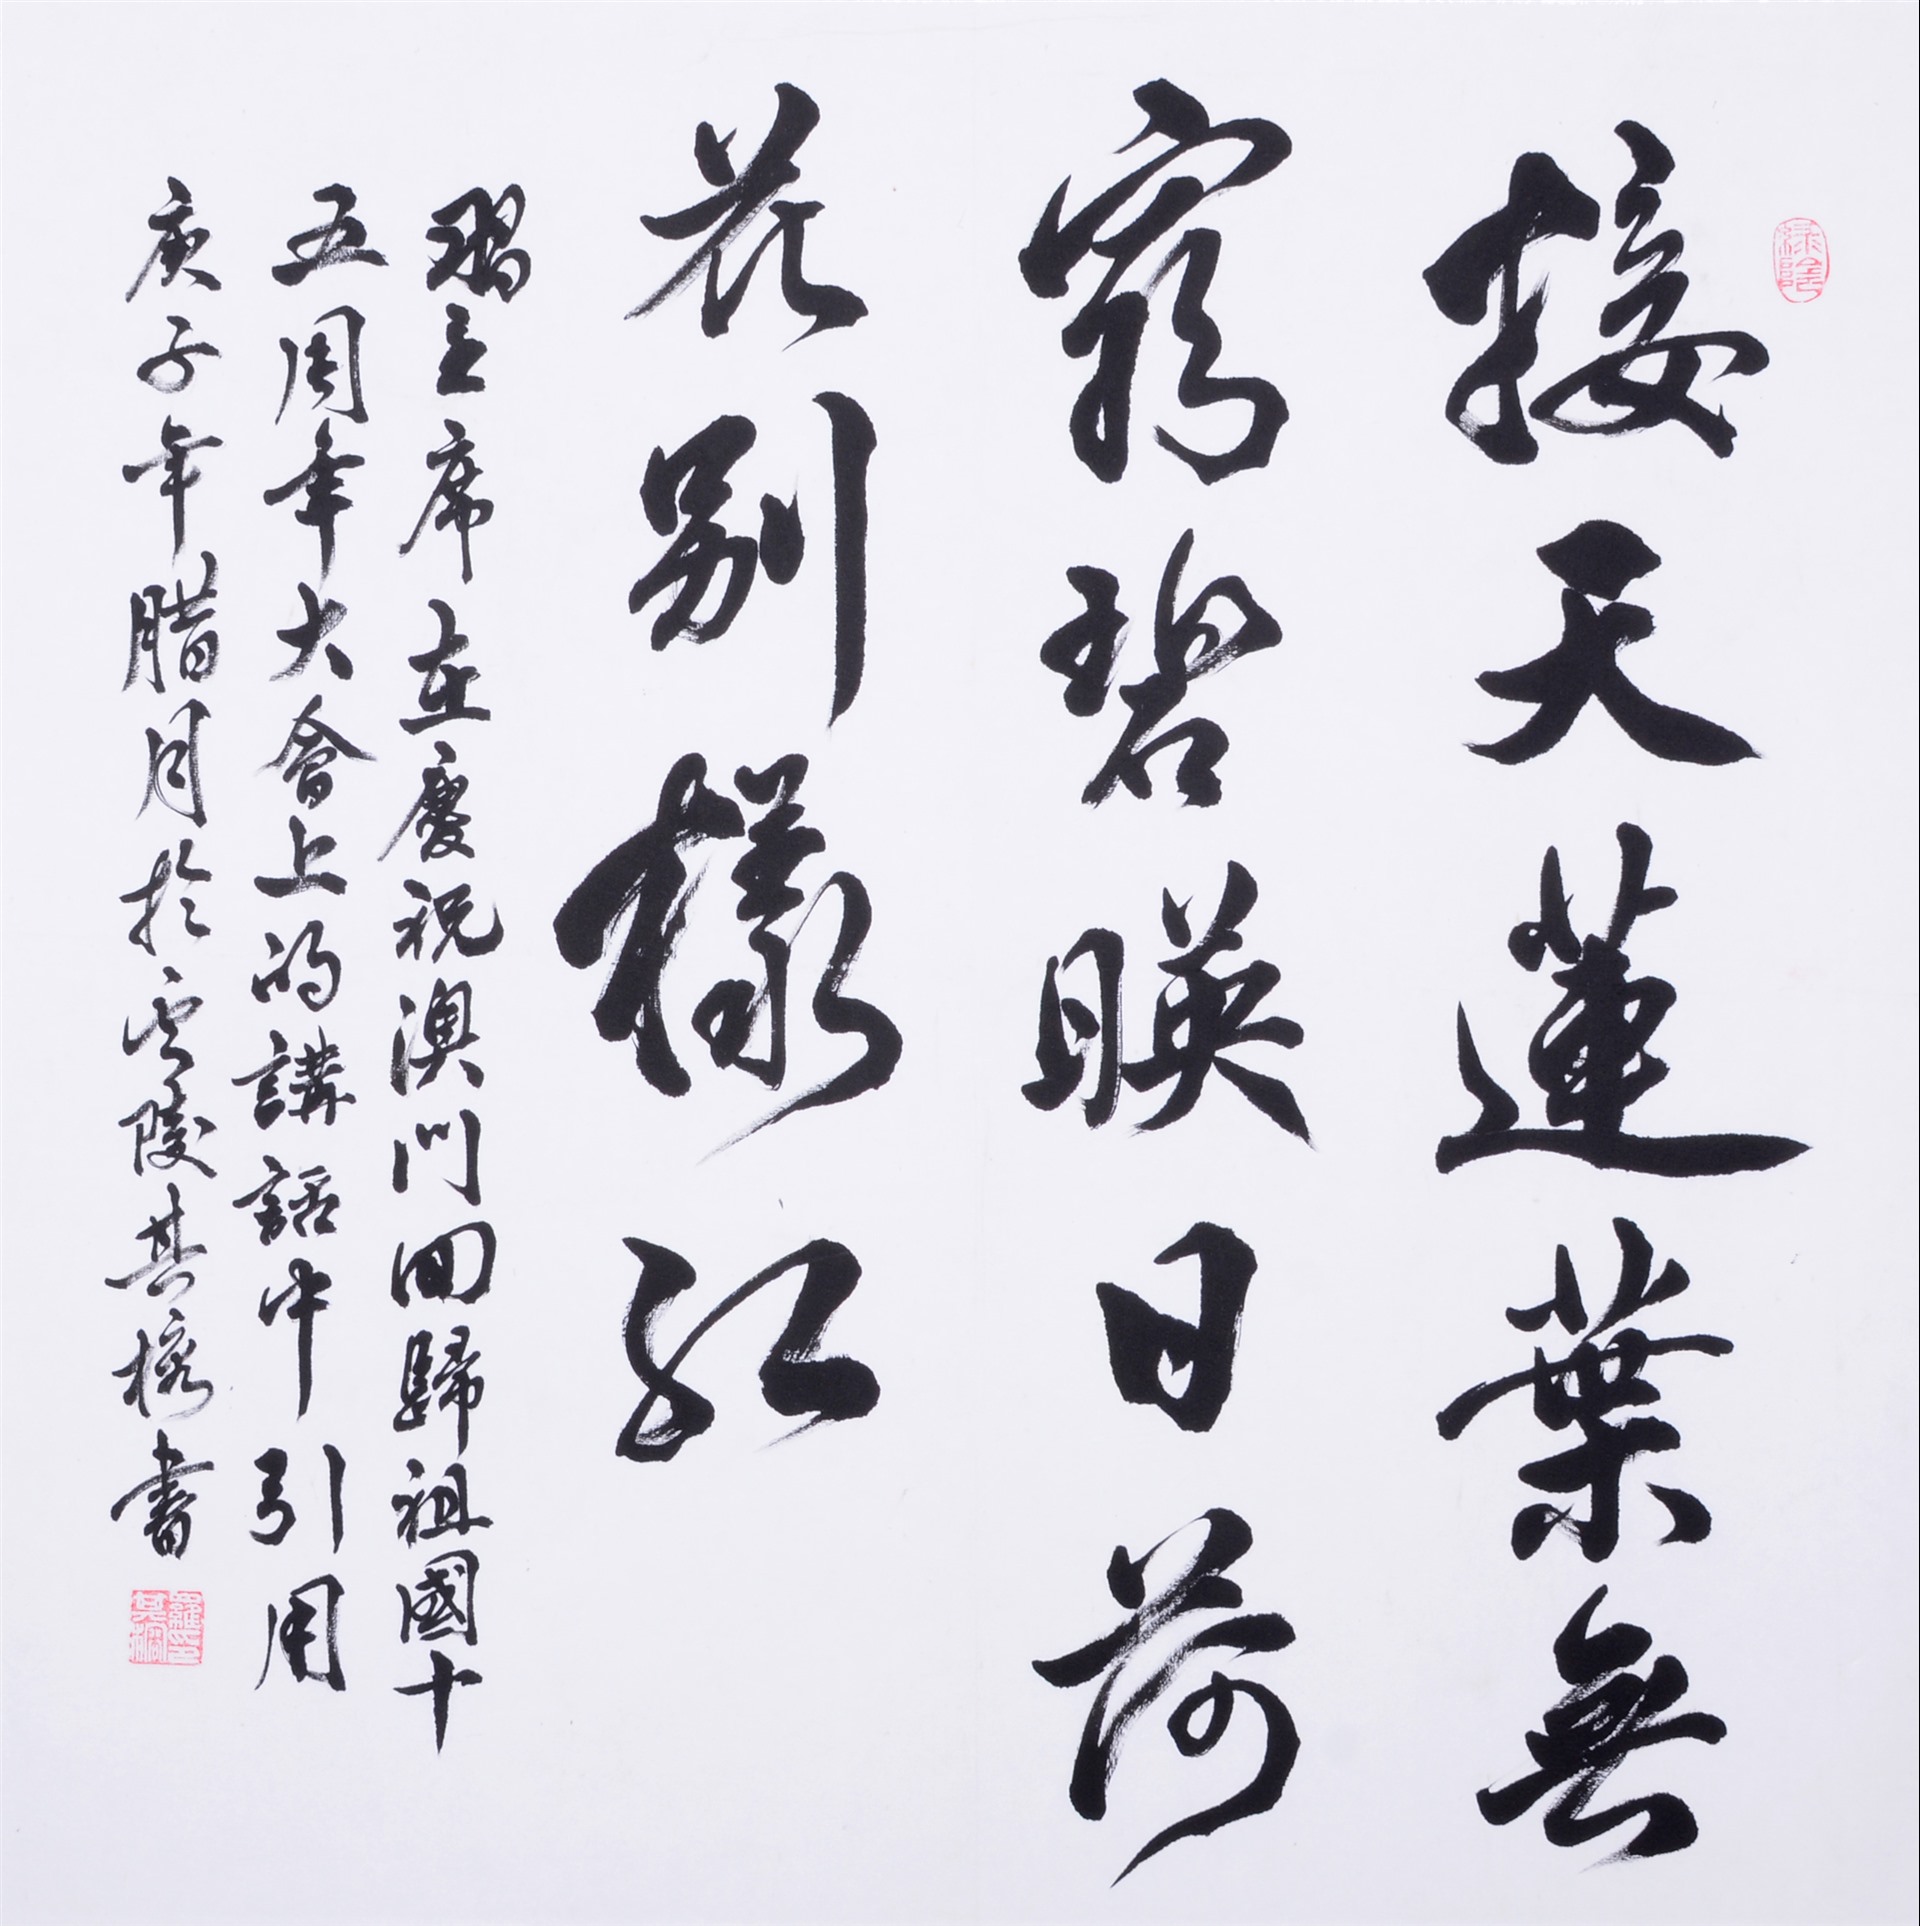 接天蓮葉無
窮碧暎日荷
花別樣紅
習主席在慶祝澳門回歸祖國十
五周年大會上的講話中引用
庚子年腊月於雲陵其書